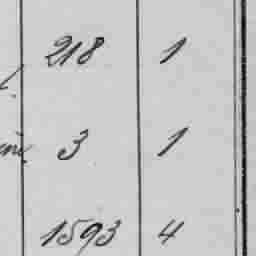 218 1
3 1
1593 4